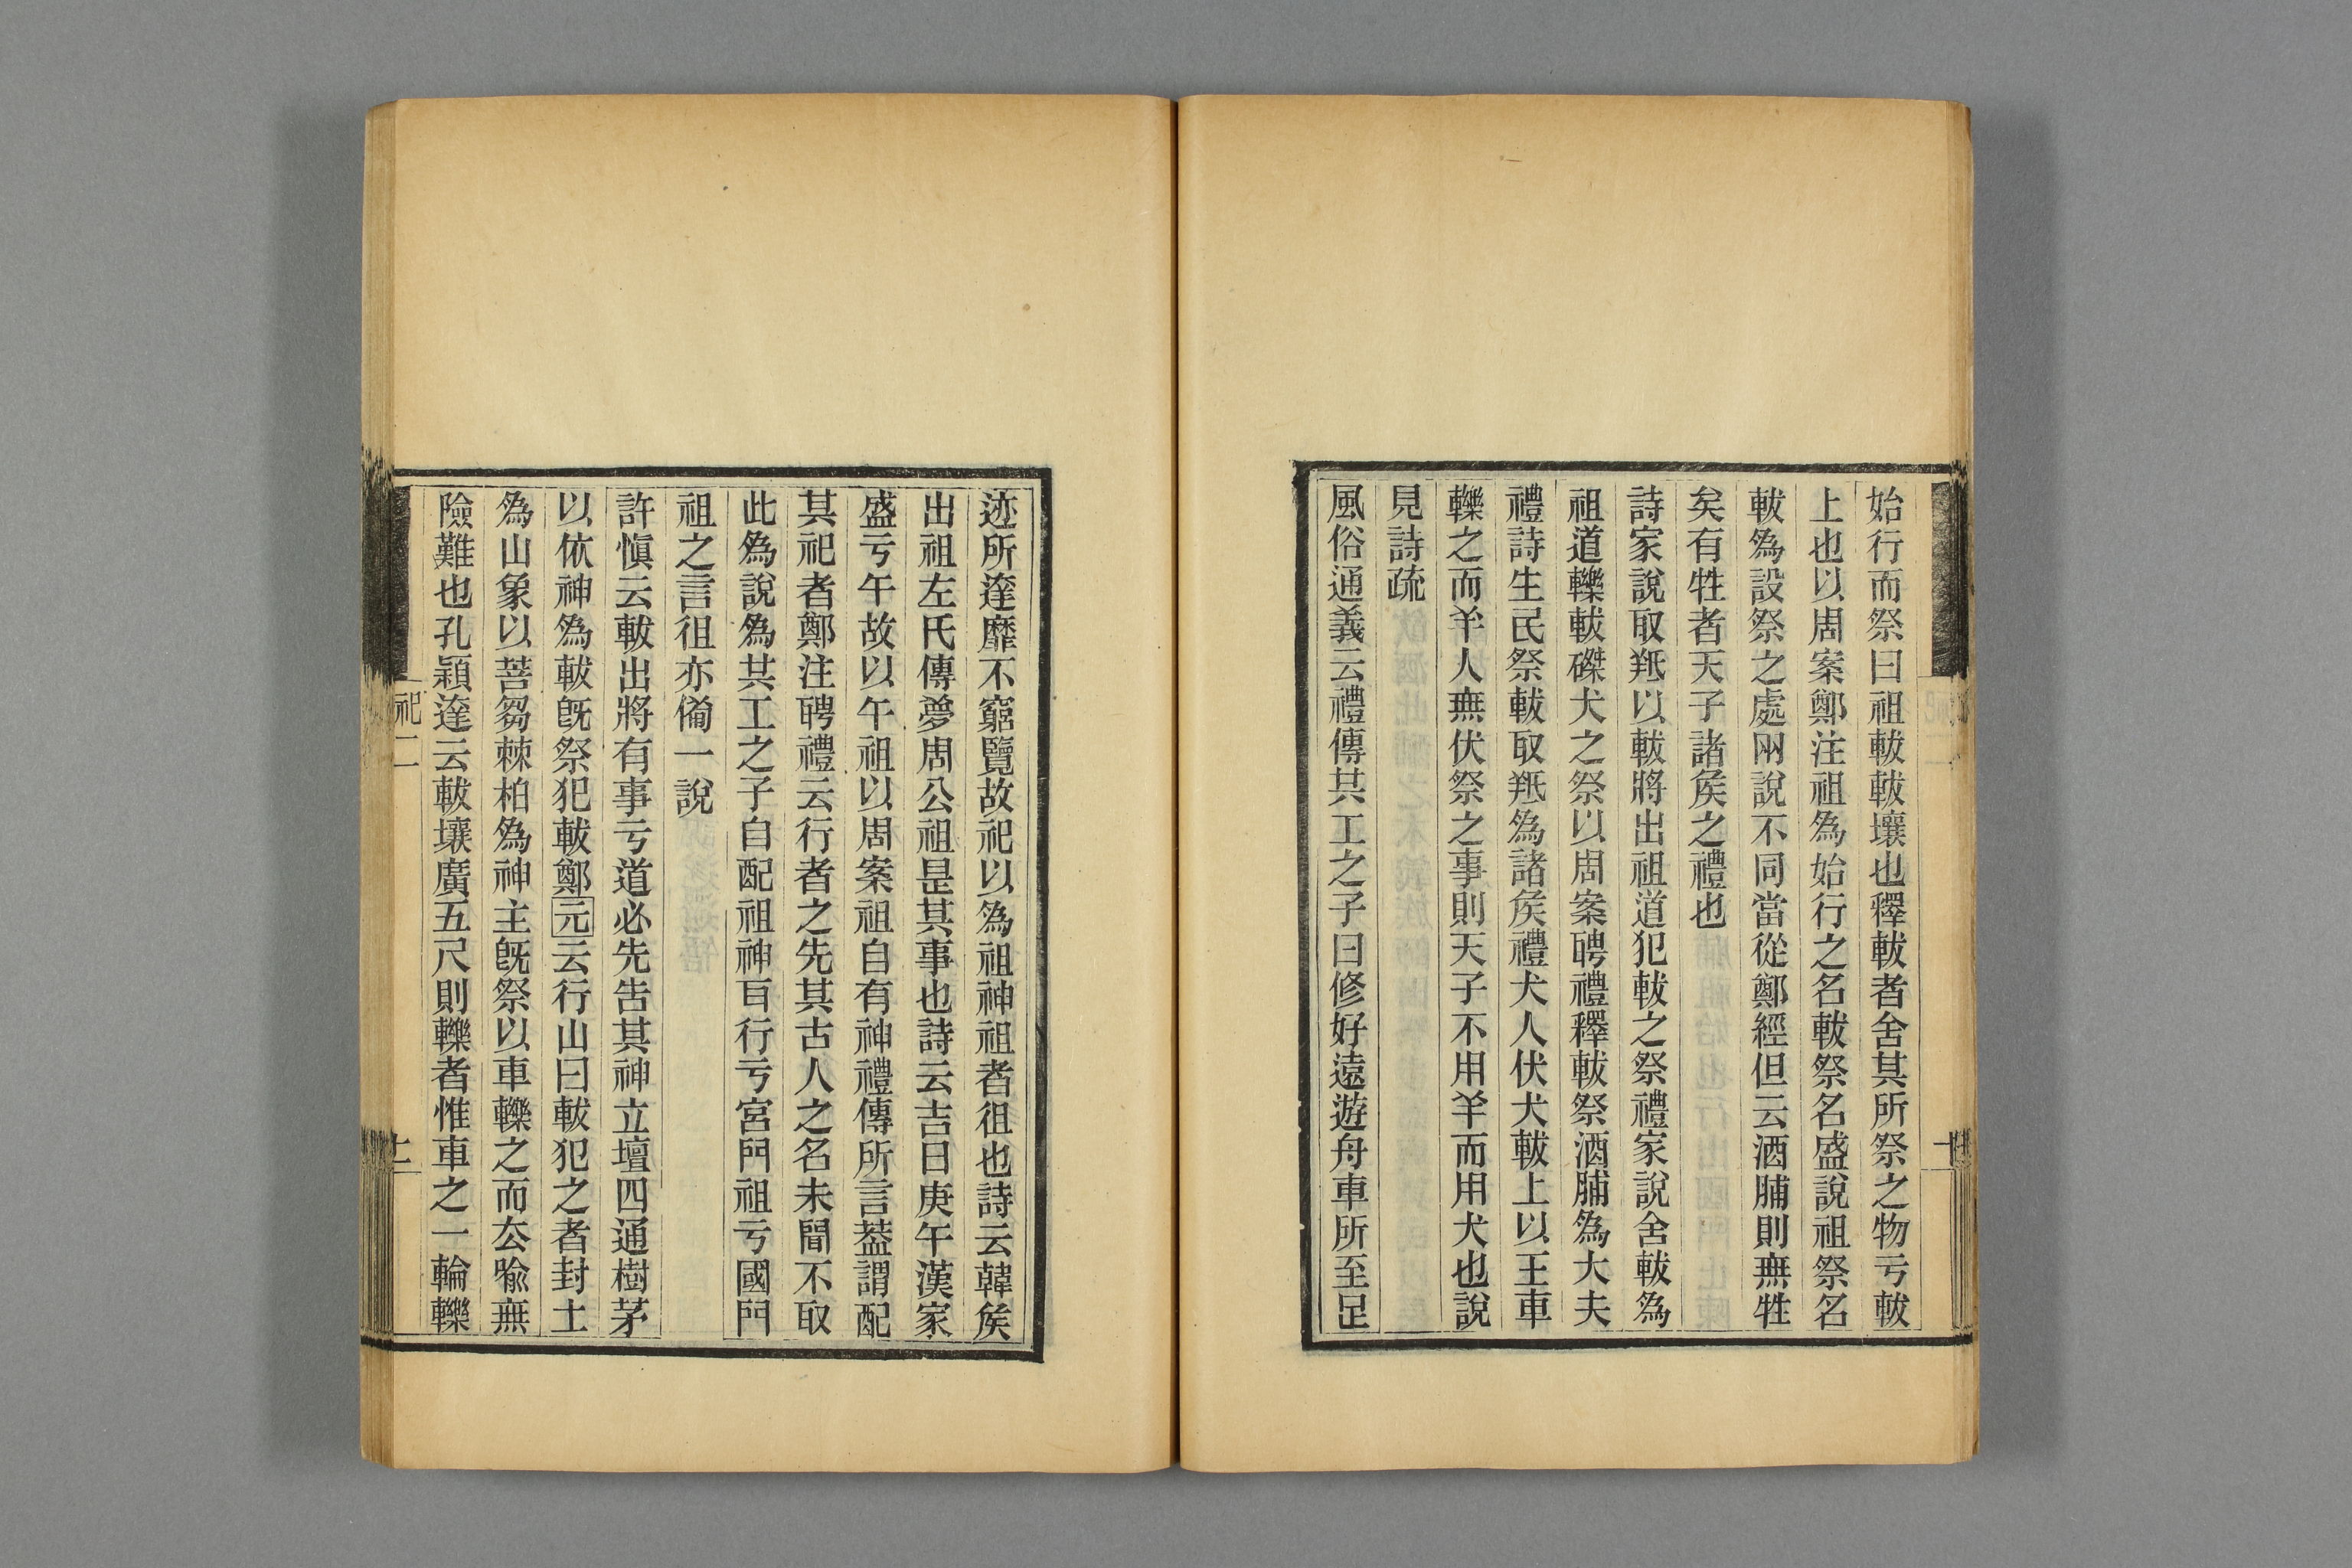 始行而祭曰祖軷軷壤也釋軷者舍其所祭之物亏軷
上也以周案鄭注祖爲始行之名軷祭名盛說祖祭名
軷爲設祭之處兩說不同當從鄭經但云酒脯則無牲
矣有牲者天子諸矦之禮也
詩家說取羝以軷將出祖道犯軷之祭禮家說舍軷爲
祖道轢軷磔犬之祭以周案聘禮釋軷祭酒脯爲大夫
禮詩生民祭軷取羝爲諸矦禮犬人伏犬軷上以王車
轢之而羊人無伏祭之事則天子不用羊而用犬也說
見詩疏
風俗通義云禮傳共工之子曰修好遠遊舟車所至足
迹所達靡不窮覽故祀以爲祖神祖者徂也詩云韓矦
出祖左氏傳夢周公祖昰其事也詩云吉日庚午漢家
盛亏午故以午祖以周案祖自有神禮傳所言葢謂配
其祀者鄭注聘禮云行者之先其古人之名未聞不取
此爲說爲共工之子自配祖神百行亏宮門祖亏國門
祖之言徂亦僃一說
許愼云軷出將有事亏道必先告其神立壇四通樹茅
以依神爲軷旣祭犯軷鄭元云行山曰軷犯之者封土
爲山象以菩芻棘柏爲神主旣祭以車轢之而厺喩無
險難也孔穎達云軷壤廣五尺則轢者惟車之一輪轢
祀二
十